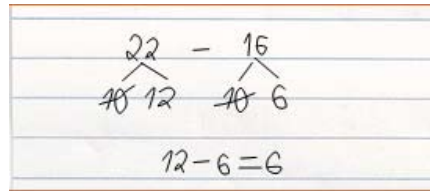 22 - 16
10 12 10 6
12-6=6